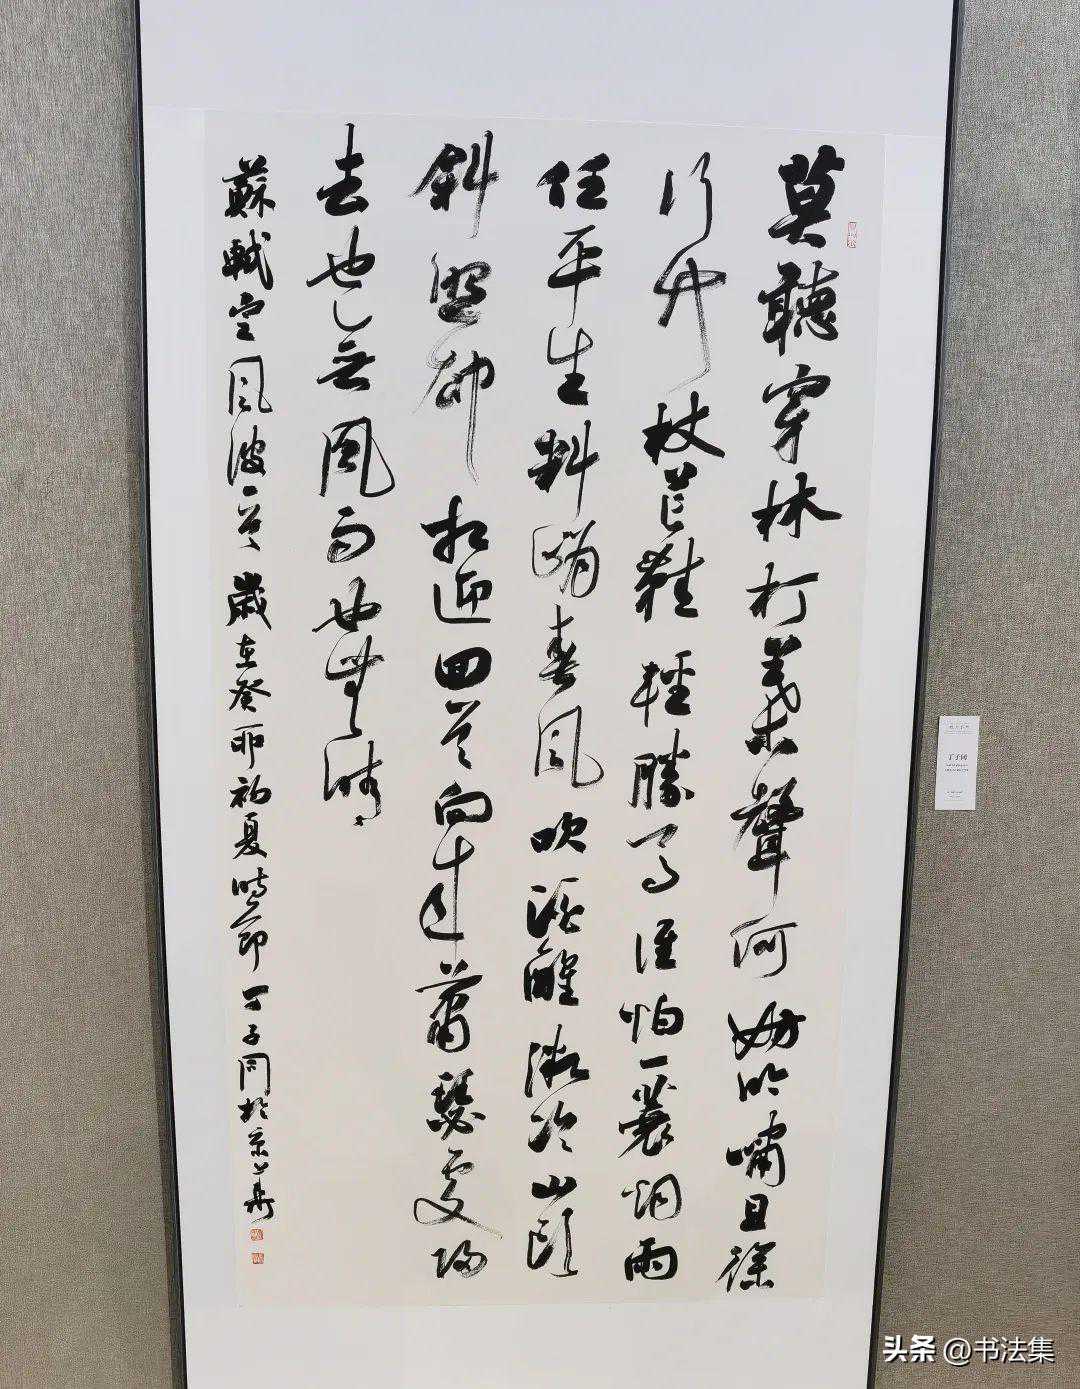 莫聽穿林打葉聲何妨吟嘯且徐
行竹杖芒鞋輕勝馬誰怕一蓑烟雨
任平生料峭春風吹酒醒微冷山頭
斜照却相迎回首向来蕭瑟處歸
去也无風雨也無晴
蘇軾定風波一首 歲在癸卯初夏時節 丁子同於京華
丁子同
头条 @书法集